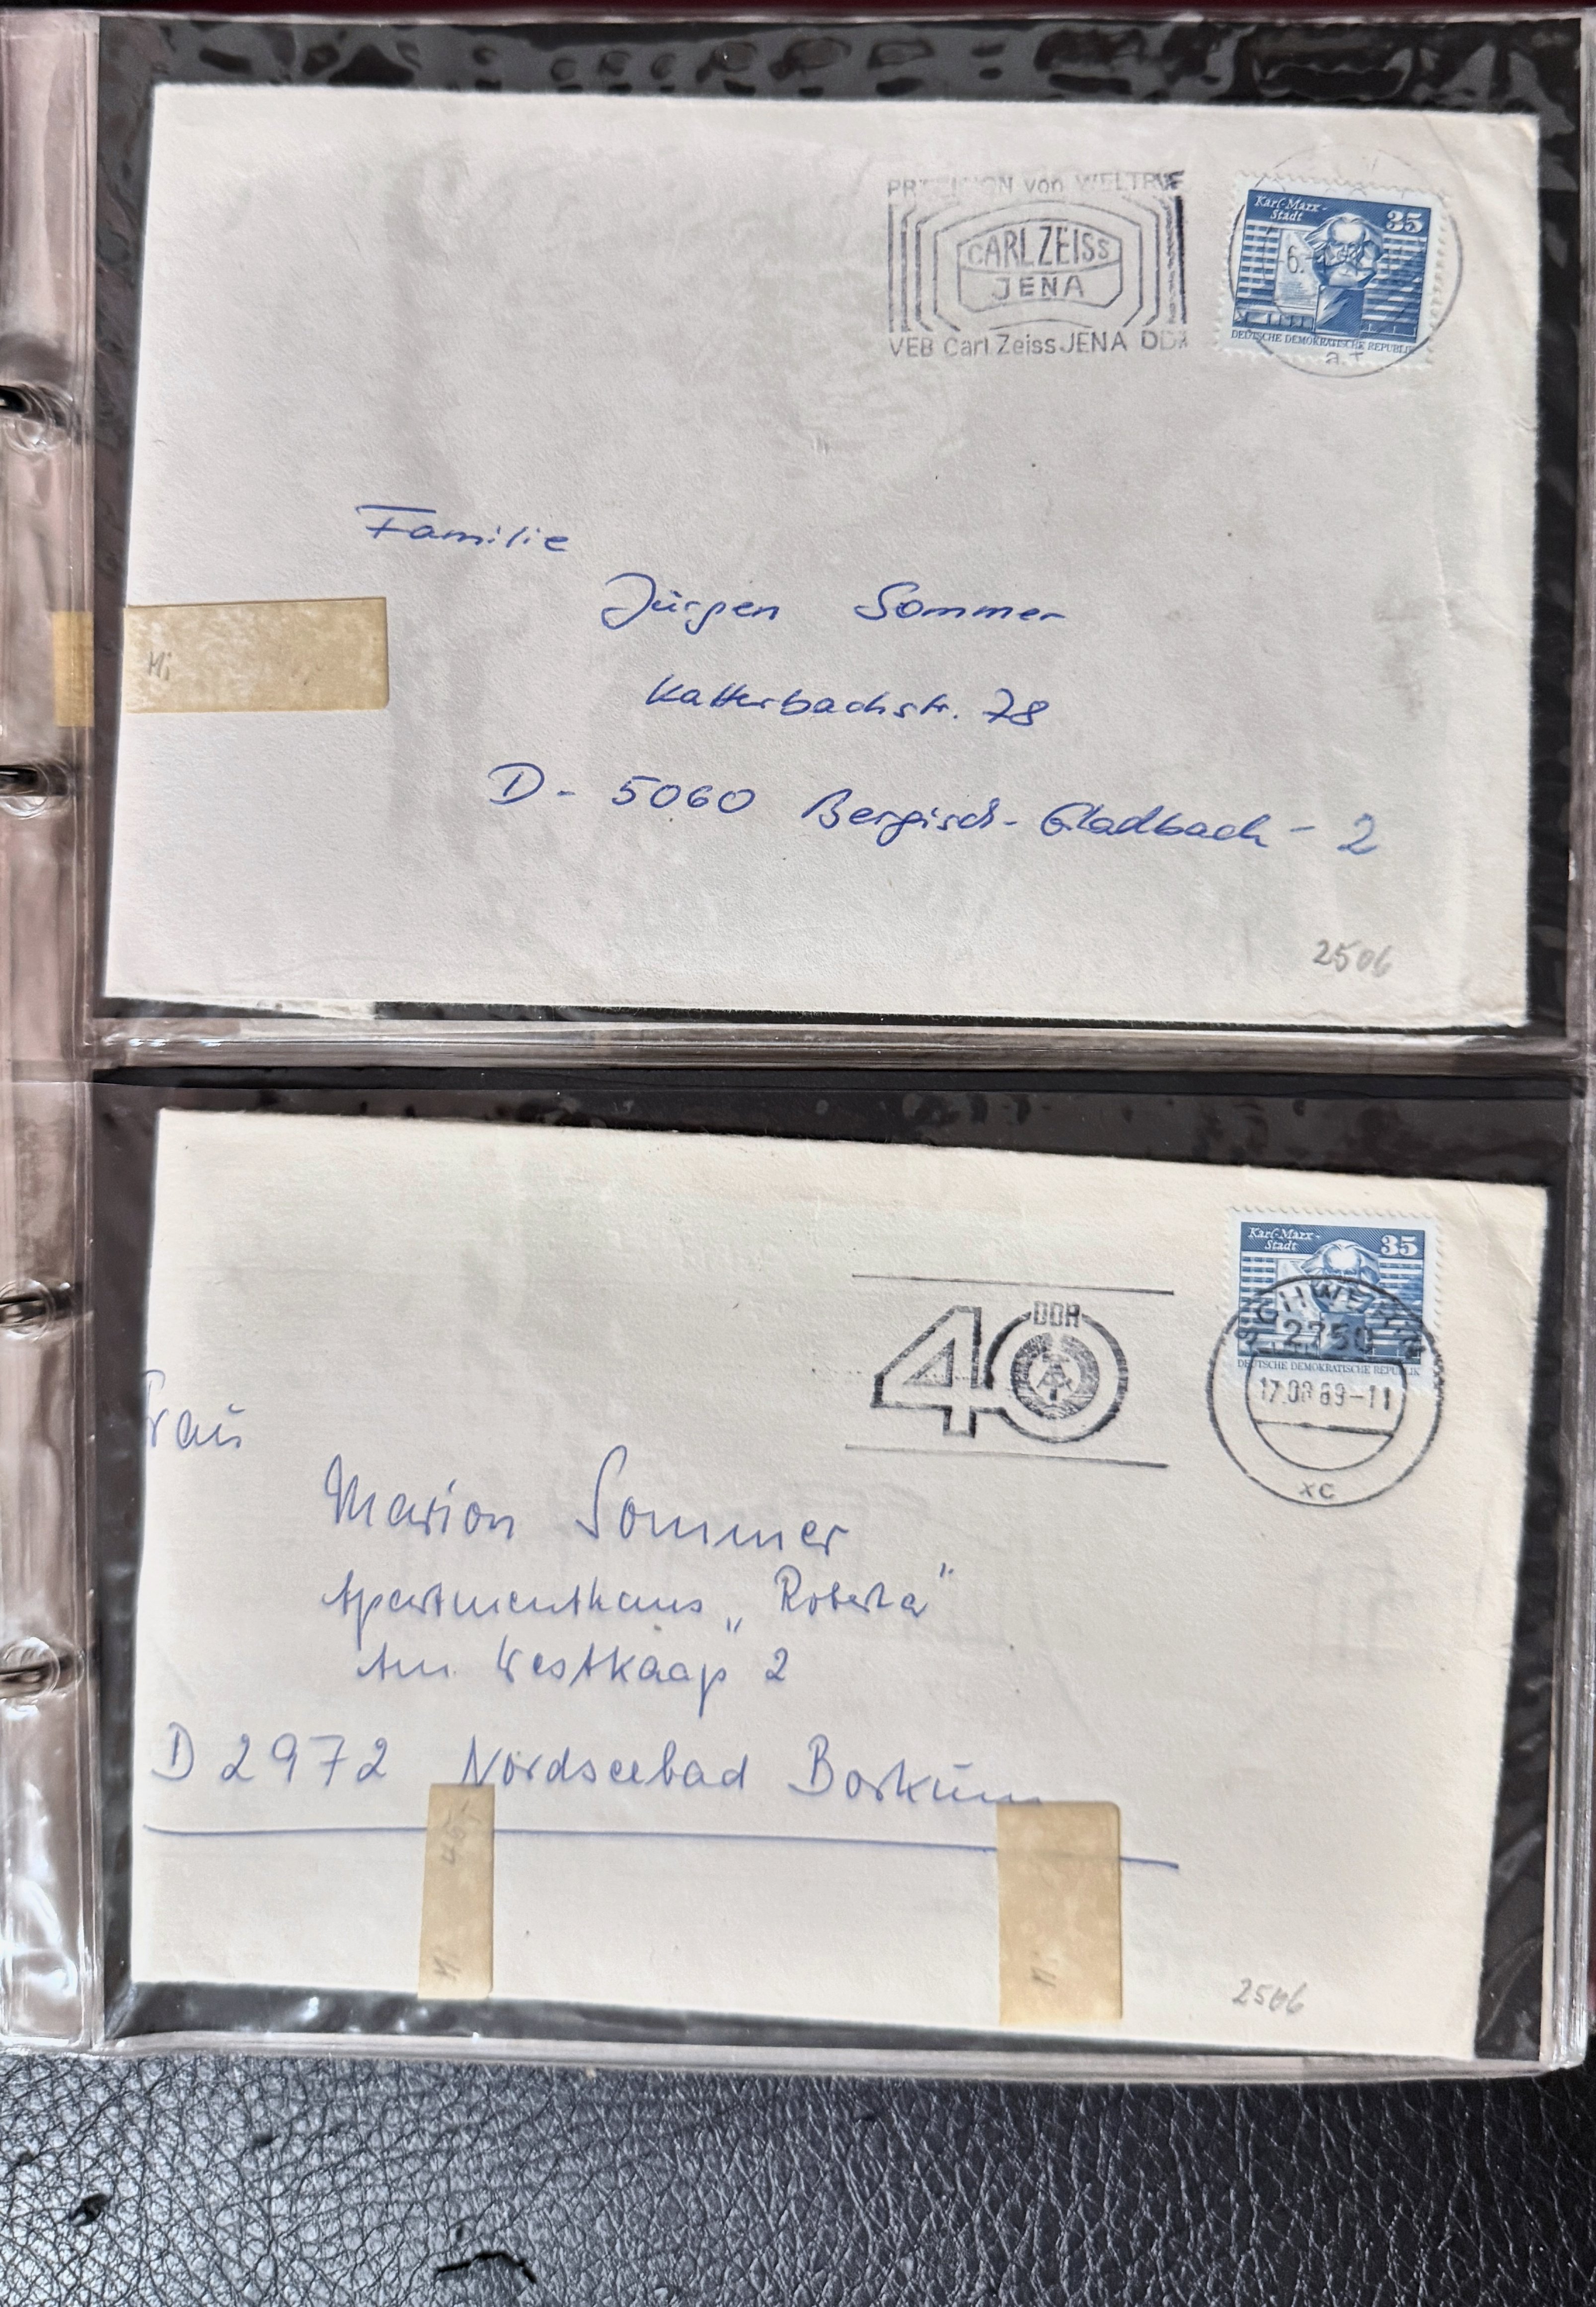 PRÄZISION von WELTRUF
CARL ZEISS
JENA
VEB Carl Zeiss JENA DDR
Karl-Marx-
Stadt
35
DEUTSCHE DEMOKRATISCHE REPUBLIK
6.
Familie
Jürgen Sommer
Mi
Katterbachstr. 78
D - 5060 Bergisch-Gladbach - 2
2506
40
DDR
Karl-Marx-
Stadt
35
SCHWERIN
2750
DEUTSCHE DEMOKRATISCHE REPUBLIK
17.08.89-11
xc
Frau
Marion Sommer
Apartmenthaus „Roberta"
Am Westkaap 2
D 2972 Nordseebad Borkum
Mi
2506